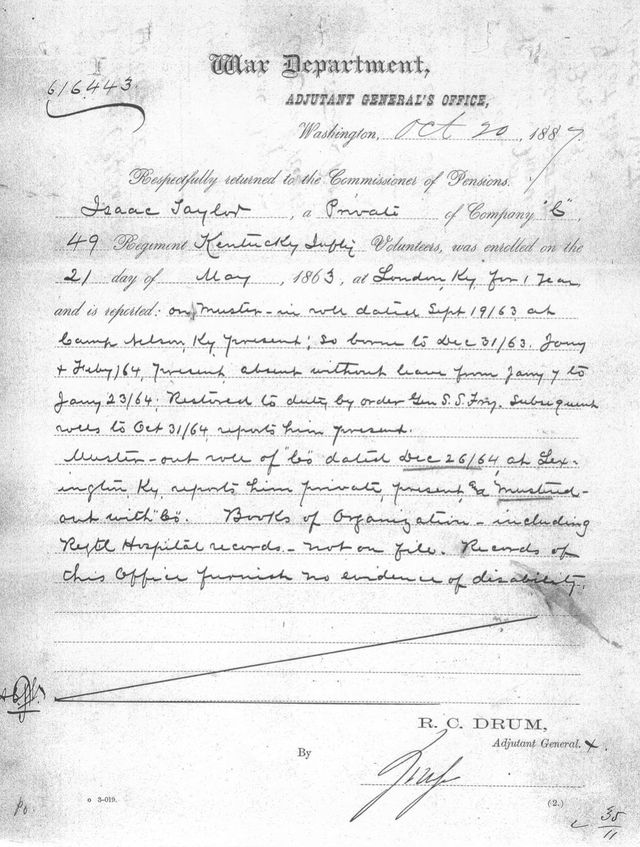 War Department,
616.443.
ADJUTANT GENERAL'S OFFICE,
Washington, Oct 20, 1887.
Respectfully returned to the Commissioner of Pensions.
Isaac Taylor, a Private of Company "C",
49 Regiment Kentucky Infty Volunteers, was enrolled on the
21 day of May, 1863, at London, Ky, for 1 Year
and is reported: on muster-in roll dated Sept 19/63 at
Camp Nelson, Ky, present; so borne to Dec 31/63. Jany
& Feby/64, present absent without leave from Jany 7 to
Jany 23/64. Restored to duty by order Gen S. S. Fry. Subsequent
rolls to Oct 31/64, reports him present.
Muster-out roll of "Co" dated Dec 26/64 at Lex-
ington, Ky, reports him private, present & mustered-
out with "Co". Books of Organization - including
Regtl Hospital records - not on file. Records of
this Office furnish no evidence of disability.
R. C. DRUM,
Adjutant General.
By
o 3-019.
(2.)
35
11